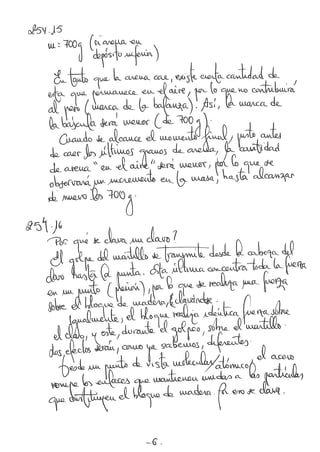 254.15
m: 700g (si arena en
depósito inferior)
En tanto que la arena cae, existe cierta cantidad de
ella que permanece en el aire, por lo que no contribuirá
al peso (marca de la balanza). Así, la marca de
la báscula será menor (de 700g).
Cuando se alcance el momento final, justo antes
de caer los últimos granos de arena, la cantidad
de arena "en el aire" será menor, por lo que se
observará un incremento en la masa, hasta alcanzar
de nuevo los 700g.
254.16
Por qué se clava un clavo?
El golpe del martillo se transmite desde la cabeza del
clavo hasta la punta. Esta última concentra toda la fuerza
en un punto (presión), por lo que se realiza una fuerza
sobre el bloque de madera, clavándose.
Igualmente, el bloque realiza idéntica fuerza sobre
el clavo, y este, durante el golpeo, sobre el martillo.
Los efectos serán, como ya sabemos, diferentes.
Desde un punto de vista molecular/atómico, el acero
rompe los enlaces que mantienen unidas a las partículas
que constituyen el bloque de madera. Por eso se clava.
- 6 -